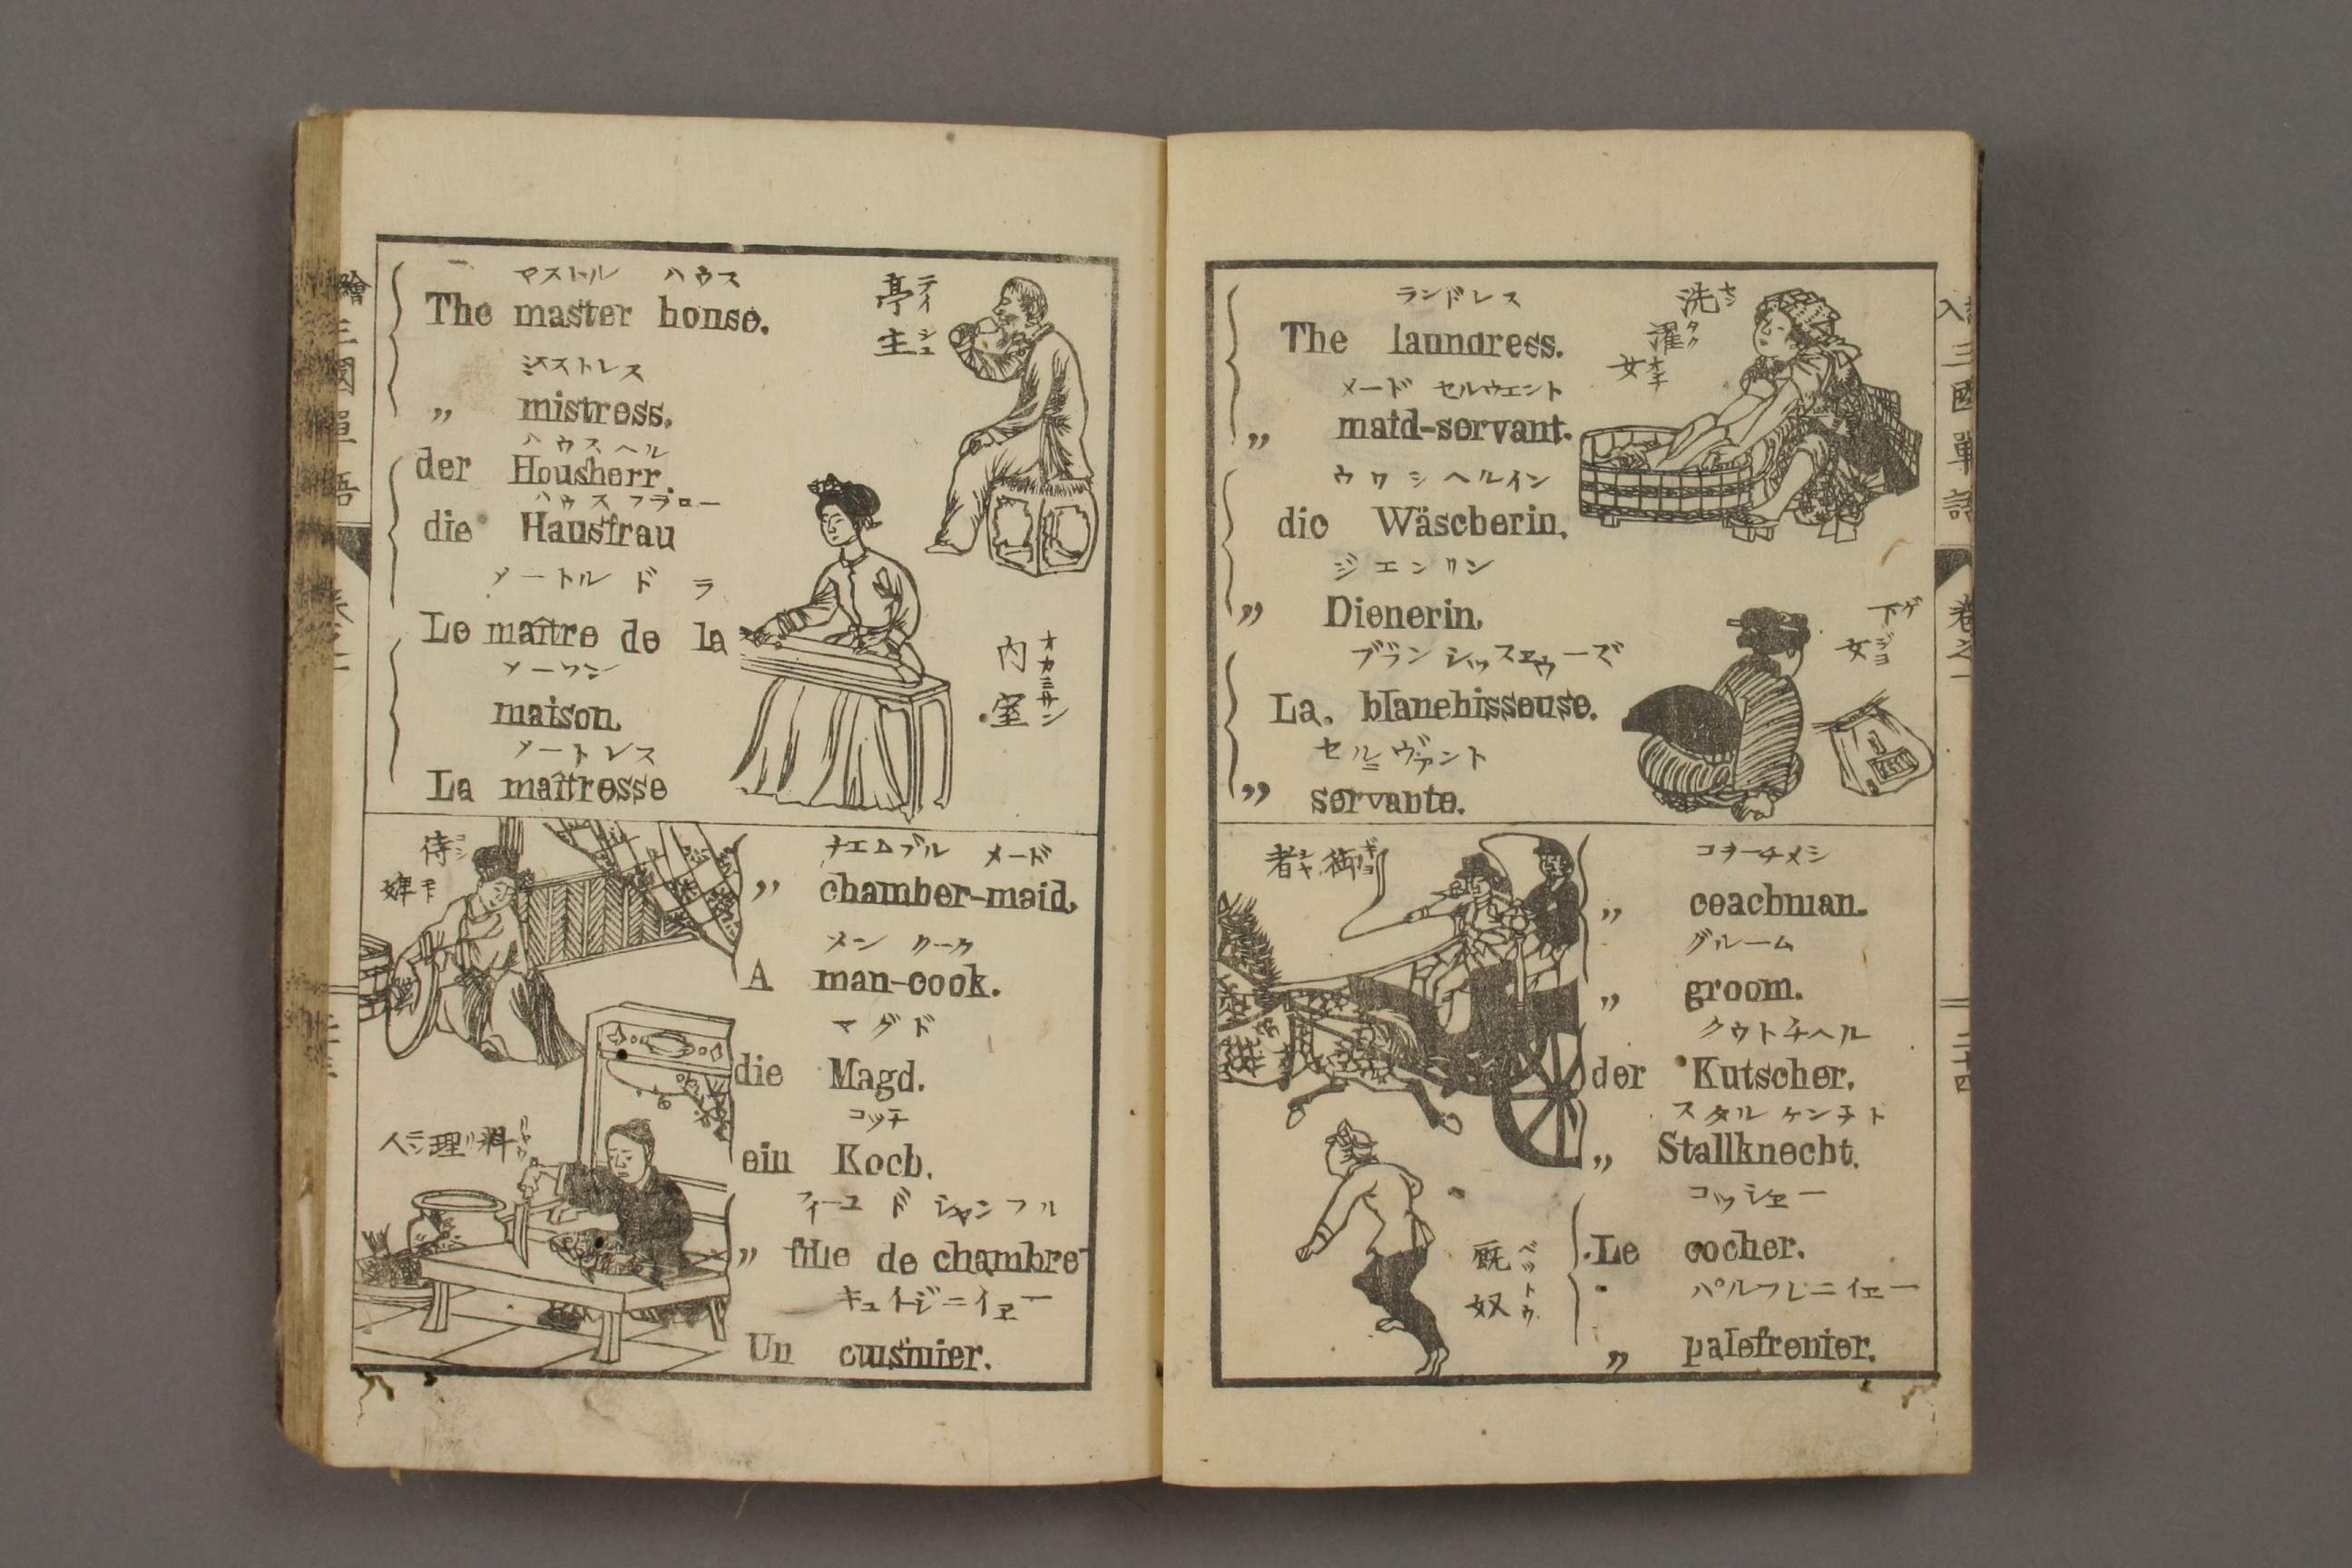 マストル ハウス
The master honse.
ミスストレス
„ mistress.
ハウスヘル
der Housherr.
ハウスフラロー
die Hausfrau
メートル ド ラ
Le maître de la
メーワン
maison.
メートレス
La maîtresse
亭主
テイシュ
内室
オカミサン
チエムブル メード
„ chamber-maid.
メン クーク
A man-cook.
マグド
die Magd.
コッチ
ein Koch.
フィーユ ド シャンフル
„ fille de chambre
キュイジニイエー
Un cuisinier.
侍婢
コシモト
料理人
ランドレス
The laundress.
メード セルウエント
„ maid-servant.
ウワシヘルイン
die Wäscherin.
ジエンリン
„ Dienerin.
ブランシッスェウーズ
La. blanchisseuse.
セルヴァント
„ servante.
洗濯女
センタクオンナ
下女
ゲジョ
コヲーチメン
„ coachman.
グルーム
„ groom.
クウトチヘル
der Kutscher.
スタルケンチト
„ Stallknecht.
コッシエー
Le cocher.
パルフレニイエー
„ palefrenier.
御者
ギョシャ
厩奴
ベットウ
三國單語
卷之一
二十四